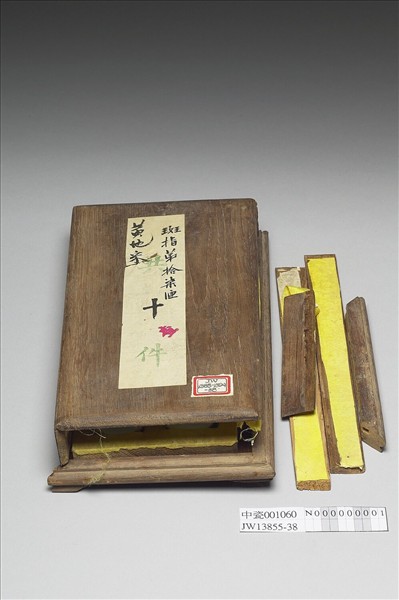 班指第拾柒匣
黃地套
十
件
JW
中瓷001060
N000000001
JW13855-38